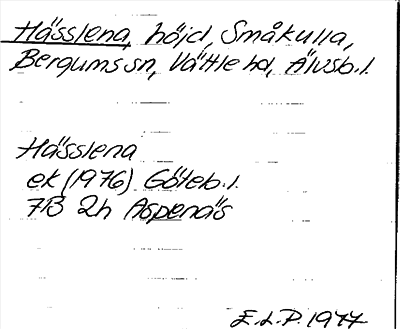 Hässlena, höjd, Småkulla,
Bergums sn, Vättle hd, Älvsb. l.
Hässlena
ek (1976) Göteb. l.
7B 2h Aspenäs
E.L.P. 1977